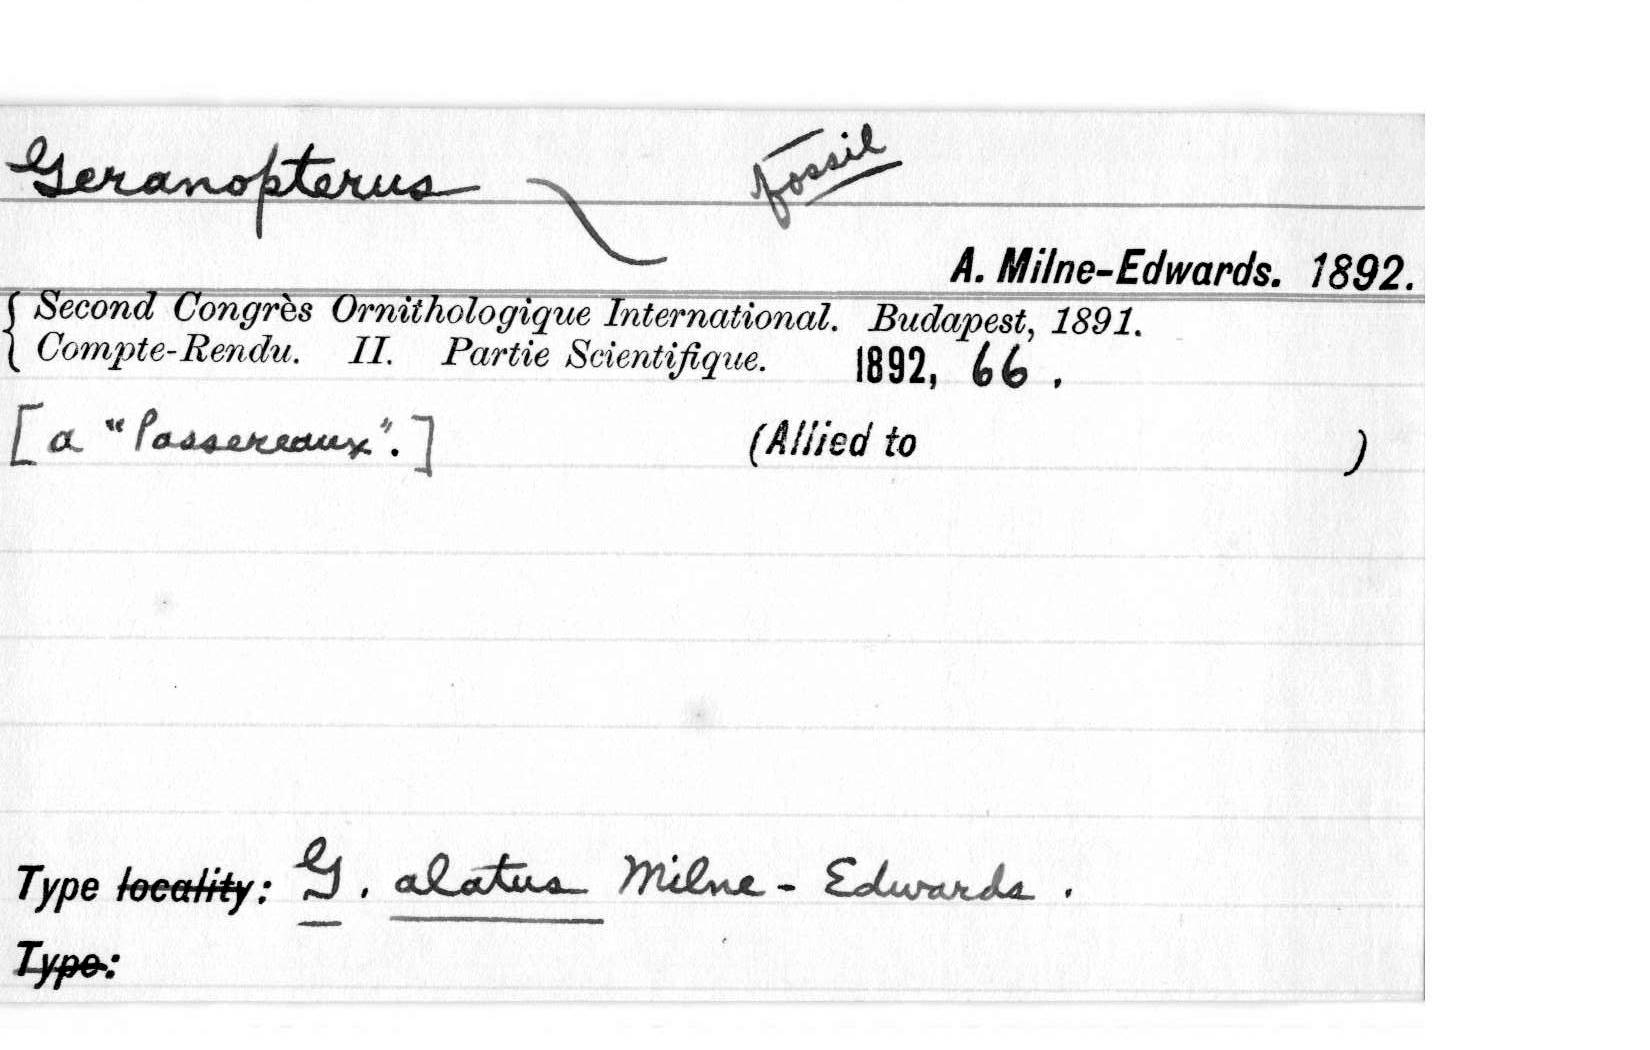 Geranopterus fossil
A. Milne-Edwards. 1892.
Second Congrès Ornithologique International. Budapest, 1891.
Compte-Rendu. II. Partie Scientifique. 1892, 66.
[a "Passereaux".] (Allied to )
Type locality: G. alatus Milne-Edwards.
Type: